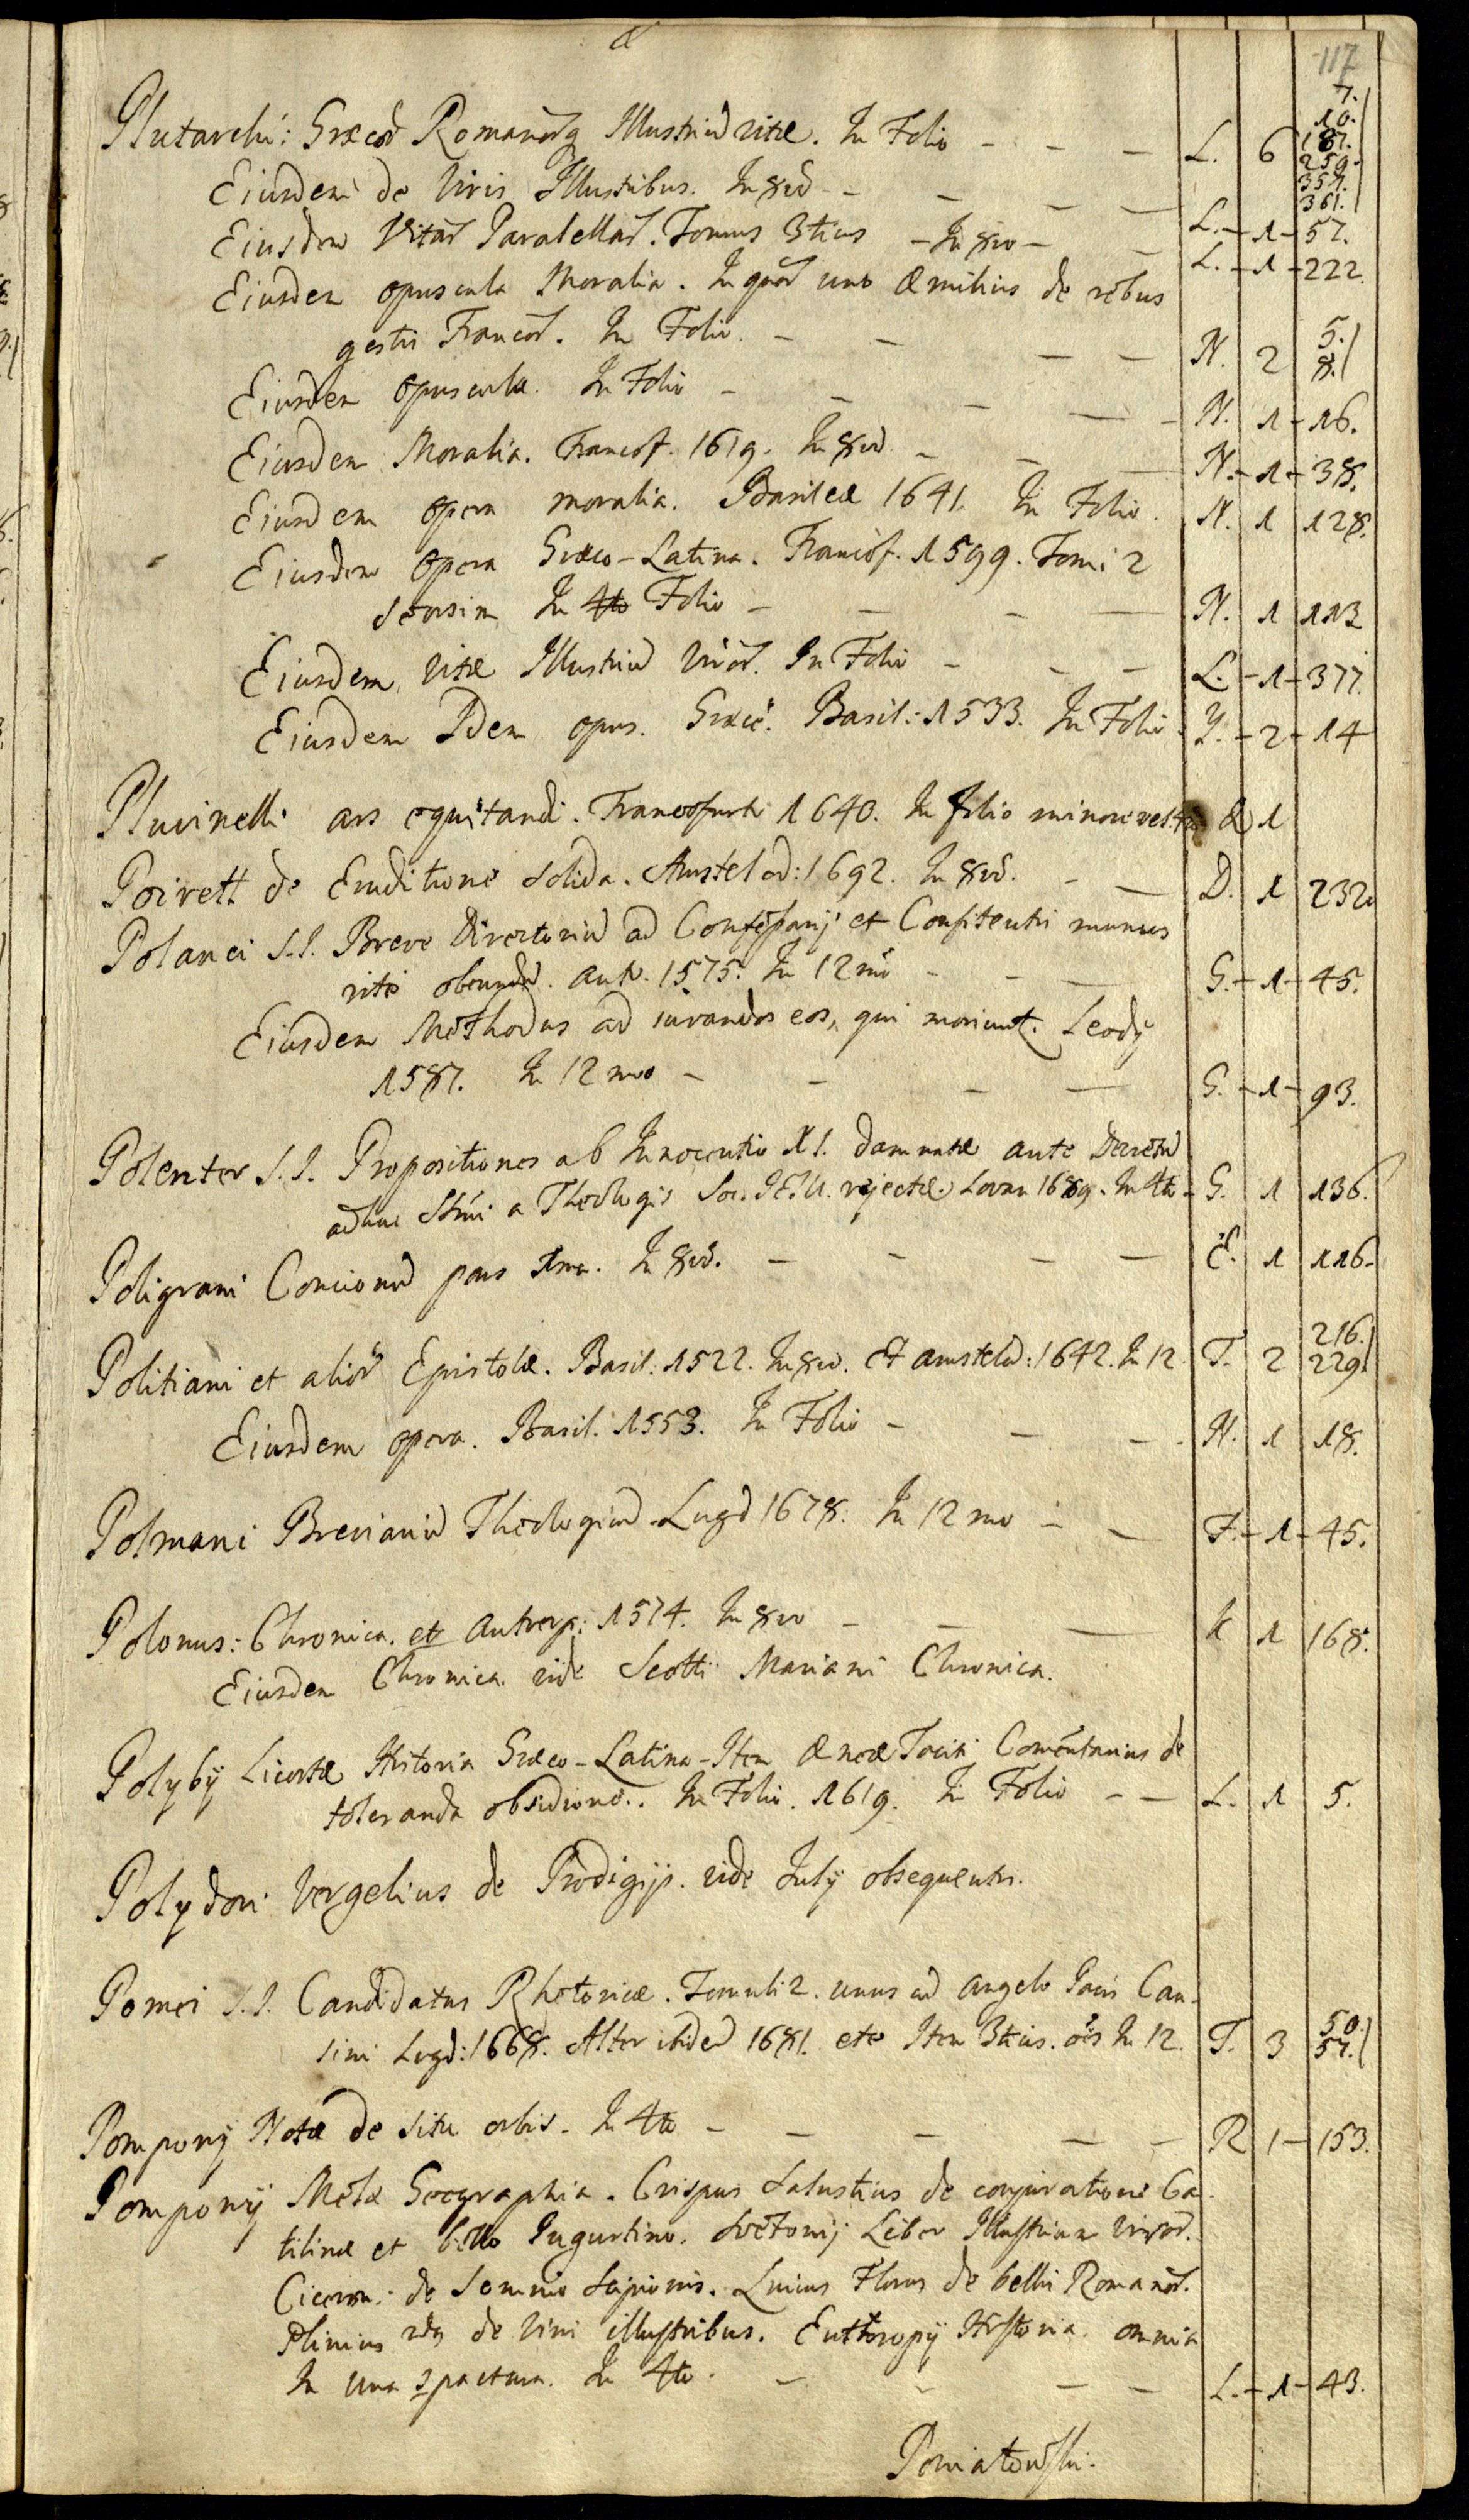 117
7.
10.
Plutarchi: Græcoř Romanořq Illustriū vitæ. In Folio - - - L. 6 187.
259.
357.
361.
Eiusdem de Viris Illustribus. In 8vō - - - - L. - 1 - 57.
Eiusdem Vitař Paralellař. Tomus 3tius - In 8vo - - L. - 1 - 222.
Eiusdem opuscula Moralia. In quař uno Æmilius de rebus
gestis Francoř. In Folio - - - - N. 2 5. 8.
Eiusdem Opuscula. In Folio - - - - N. 1 - 16.
Eiusdem Moralia. Francof. 1619. In 8vō - - - N. - 1 - 38.
Eiusdem opera moralia. Basileæ 1641. In Folio. N. 1 128.
Eiusdem Opera Græco-Latina. Francof. 1599. Tomi 2
seorsim In 4to Folio - - - - N. 1 113
Eiusdem, Vitæ Illustriū Viroř. In Folio - - - L. - 1 - 377.
Eiusdem Idem opus. Græcè. Basil: 1533. In Folio. Y. - 2 - 14
Pluvinelli ars equitandi. Francofurti 1640. In folio minore vel 4to Q 1
Poirett de Eruditione Solida. Amstelod: 1692. In 8vō. - - D. 1 232
Polanci S.I. Breve Directoriū ad Confessarij et Confitentis munus
ritè obeundū. Antv. 1575. In 12mō - - - G. - 1 - 45.
Eiusdem Methodus ad iuvandos eos, qui moriunt. Leodÿ
1587. In 12mo - - - - G. - 1 - 93.
Polenter S.I. Propositiones ab Innocentio XI. damnatæ ante Decretū
adhuc Sṁi a Theologis Soc. IESU. rejectæ. Lovan 1689. In 4to - G. 1 136.
Poligrani Concionū pars 1ma. In 8vō. - - - - E. 1 116.
Politiani et alioř Epistolæ. Basil: 1522. In 8vo. et Amstelod: 1642. In 12. T. 2 216. 229.
Eiusdem opera. Basil. 1553. In Folio - - - N. 1 18.
Polmani Breviariū Theologicū. Lugd 1678. In 12mo - - F. - 1 - 45.
Polonus: Chronica. et Antverp: 1574. In 8vo - - - K 1 168.
Eiusdem Chronica vide Scotti Mariani Chronica.
Polybÿ Licortæ Historia Græco-Latina - Item Æneæ Tacit: Comēntarius de
toleranda obsidione.. In Folio. 1619. In Folio - - L. 1 5.
Polydori Vergelius de Prodigijs. vide Julÿ obsequentis.
Pomei S.I. Candidatus Rhetoricæ. Tomuli 2. unus cū Angelo Pacis Cau-
sini Lugd: 1668. Alter ibidē 1681. etc Item 3tius. oēs In 12. T. 3 50. 57.
Pomponÿ Notæ de situ orbis. In 4to - - - - - R 1 - 153.
Pomponÿ Melæ Geographia. Crispus Salustius de conjuratione Ca-
tilinæ et bello Jugurtino. Svetonij Liber Illustrium Viroř.
Ciceron: de Somnio Scipionis. Lucius Florus de bellis Romanoř.
Plinius 2dq de Viris illustribus. Euthropij Historia. omnia
In una compactura. In 4to. - - - - L. - 1 - 43.
Poniatowski.